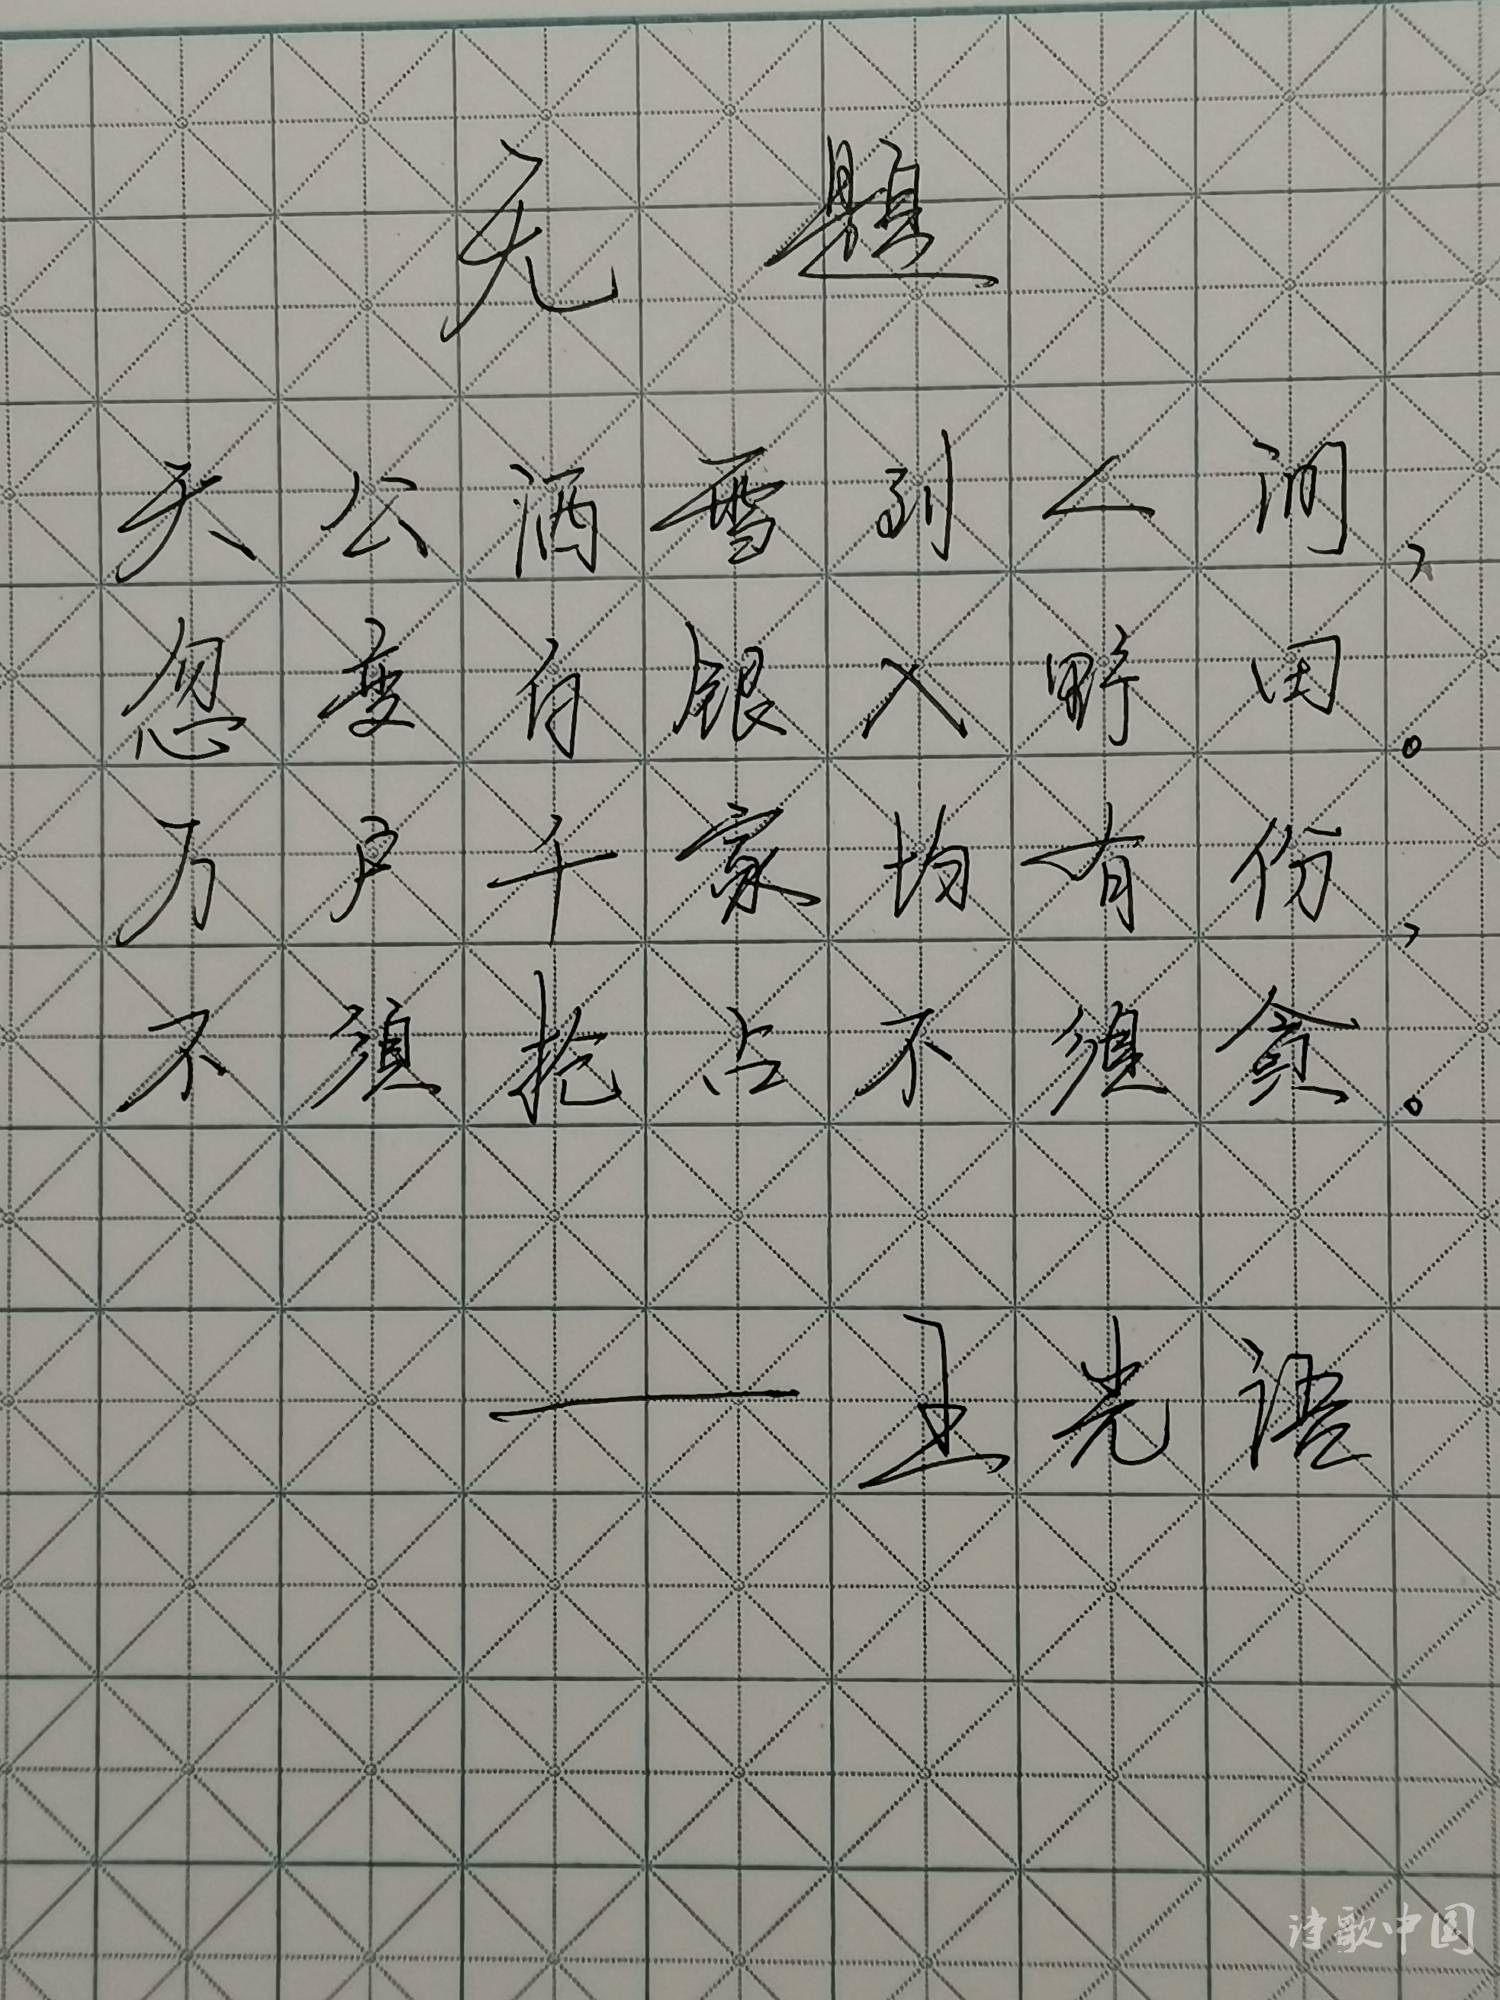 无题
天公洒雪到人间，
忽变白银入野田。
万户千家均有份，
不须抢占不须贪。
——王光语
诗歌中国